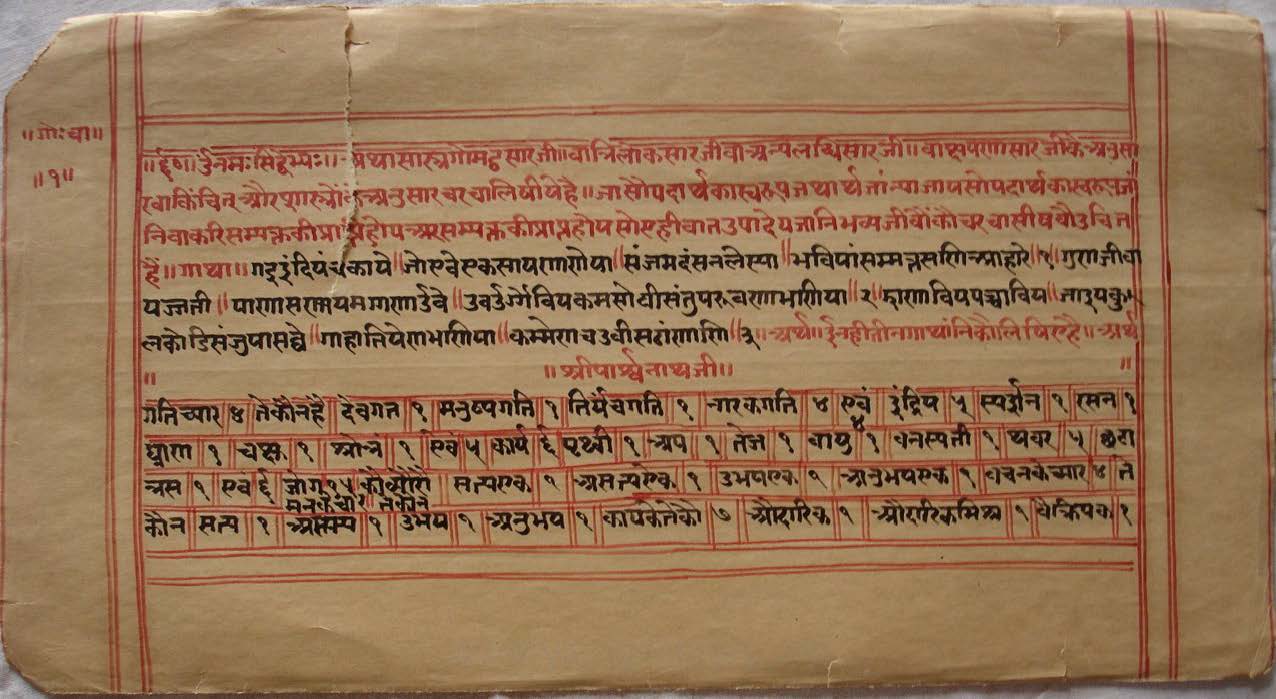 ॥गोः चा॥
॥१॥
॥र्द्द०॥ र्उ नमः सिद्धेभ्यः॥ अथासास्त्रगोमट्टसारजी॥ वा त्रिलोकसारजी वा अन्य लब्धिसारजी॥ वा क्षपणासारजीकै अनुसा
र वा किंचित और शास्त्रों कै अनुसार चरचा लिषीये है॥ जासौ पदार्थ का स्वरूप जथार्थ जांन्या जाय सो पदार्थ का स्वरूप जां
निवाकरि सम्यक्तकी प्राप्ति होय अर सम्यक्तकी प्राप्त होय सो एही वात उपादेय जानि भव्यजीवोंकौ चरचा सीषवौ उचित
हैं॥ गाथा॥ गइ इंदियं च काये॥ जोए वेए कसाय णाणेया॥ संजम दंसन लेस्या॥ भविया संमत्त सणि आहारे॥१॥ गुण जीवा
पज्जती॥ पाणा सणा य मग्गणाउ वे॥ उवउगो विय कमसो वीसं तु परूवणा भणिया॥२॥ झाणा विय पच्चा विय॥ जाइ य कु
लकोडि संजुया सव्वे॥ गाहा तियेण भणिया॥ कम्मेण च उवीस ठांणाणि॥३॥ अर्थ॥ इन ही तीन गाथांनिकौ लिषिए है॥ अर्थ
॥ ॥श्रीपार्श्वनाथजी॥ ॥
गति च्यार ४ ते कौन है देवगत १ मनुष्यगति १ तिर्यंचगति १ नारकगति ४ एवं इंद्रिय ५ स्पर्शन १ रसन १
घ्राण १ चक्षु १ श्रोत्र १ एवं ५ काय ६ पृथ्वी १ अप १ तेज १ वायु १ वनस्पती १ थावर ५ छठा
त्रस १ एवं ६ जोग १५ सत्य एक १ असत्य एक १ उभय एक १ अनुभय एक १ वचन के च्यार ४ ते
मन के च्यार ते कौन
कौन सत्य १ असत्य १ उभय १ अनुभय १ काय के ते कौ ७ औदारिक १ औदारिकमिश्र १ वैक्रियक १